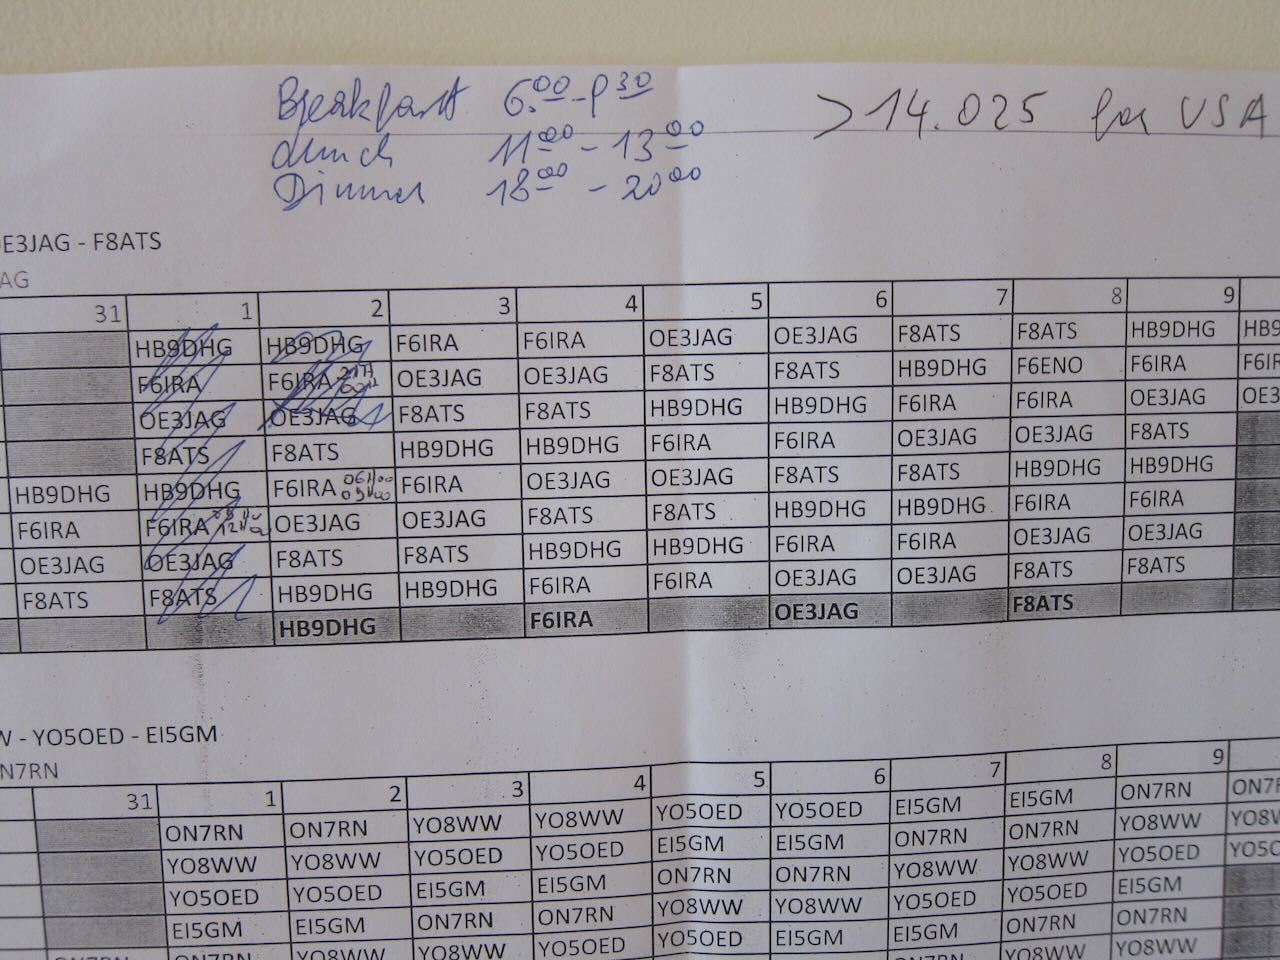 Breakfast 6.00 - 8 30
Lunch 11 00 - 13 00
Dinner 18 00 - 20 00
>14.025 for USA
OE3JAG - F8ATS
AG
31 1 2 3 4 5 6 7 8 9
HB9DHG HB9DHG F6IRA F6IRA OE3JAG OE3JAG F8ATS F8ATS HB9DHG HB9
F6IRA F6IRA OE3JAG OE3JAG F8ATS F8ATS HB9DHG F6ENO F6IRA F6IR
OE3JAG OE3JAG F8ATS F8ATS HB9DHG HB9DHG F6IRA F6IRA OE3JAG OE3
F8ATS F8ATS HB9DHG HB9DHG F6IRA F6IRA OE3JAG OE3JAG F8ATS
HB9DHG HB9DHG F6IRA 06H00 09H00 F6IRA OE3JAG OE3JAG F8ATS F8ATS HB9DHG HB9DHG
F6IRA F6IRA OE3JAG OE3JAG F8ATS F8ATS HB9DHG HB9DHG F6IRA F6IRA
OE3JAG OE3JAG F8ATS F8ATS HB9DHG HB9DHG F6IRA F6IRA OE3JAG OE3JAG
F8ATS F8ATS HB9DHG HB9DHG F6IRA F6IRA OE3JAG OE3JAG F8ATS F8ATS
HB9DHG F6IRA OE3JAG F8ATS
W - YO5OED - EI5GM
N7RN
31 1 2 3 4 5 6 7 8 9
ON7RN ON7RN YO8WW YO8WW YO5OED YO5OED EI5GM EI5GM ON7RN ON7R
YO8WW YO8WW YO5OED YO5OED EI5GM EI5GM ON7RN ON7RN YO8WW YO8W
YO5OED YO5OED EI5GM EI5GM ON7RN ON7RN YO8WW YO8WW YO5OED YO5O
EI5GM EI5GM ON7RN ON7RN YO8WW YO8WW YO5OED YO5OED EI5GM
ON7RN ON7RN YO8WW YO8WW YO5OED YO5OED EI5GM EI5GM ON7RN ON7RN
ON7RN YO8WW YO8WW